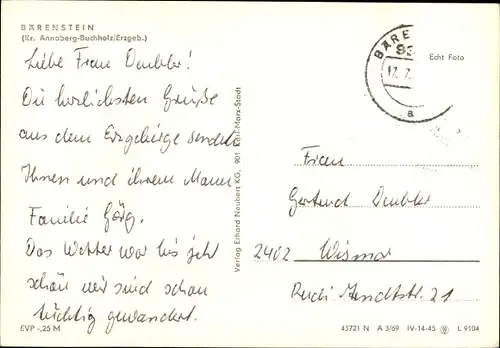 BÄRENSTEIN
(Kr. Annaberg-Buchholz/Erzgeb.)
Liebe Frau Deubler!
Die herzlichsten Grüße
aus dem Erzgebirge sendet
Ihnen und ihrem Mann
Familie Görg.
Das Wetter war bis jetzt
schön wir sind schon
tüchtig gewandert.
EVP -,25 M
Verlag Erhard Neubert KG, 901 Karl-Marx-Stadt
BÄRE
93
17.7.
a
Echt Foto
Frau
Gertrud Deubler
2402 Wismar
Rudi Arndtstr. 21
43721 N A 3/69 IV-14-45 L 9104